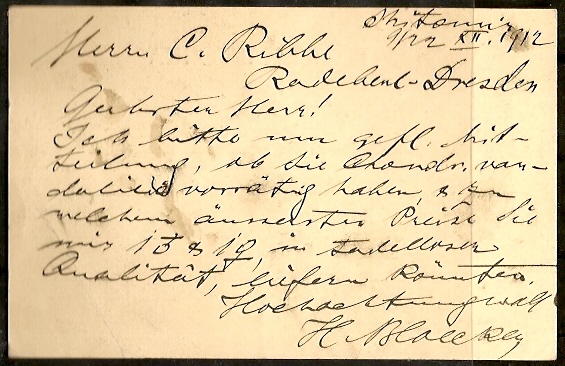 Shitomir
9/22 XII. 1912
Herrn C. Ribbe
Radebeul-Dresden
Geehrter Herr!
Ich bitte um gefl. Mit-
teilung, ob Sie Chondr. van-
dalicia vorrätig haben, & zu
welchem äussersten Preise Sie
mir 1 ♂ & 1 ♀, in tadelloser
Qualität, liefern könnten.
Hochachtungsvoll
H.